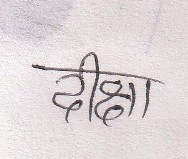 दीक्षा